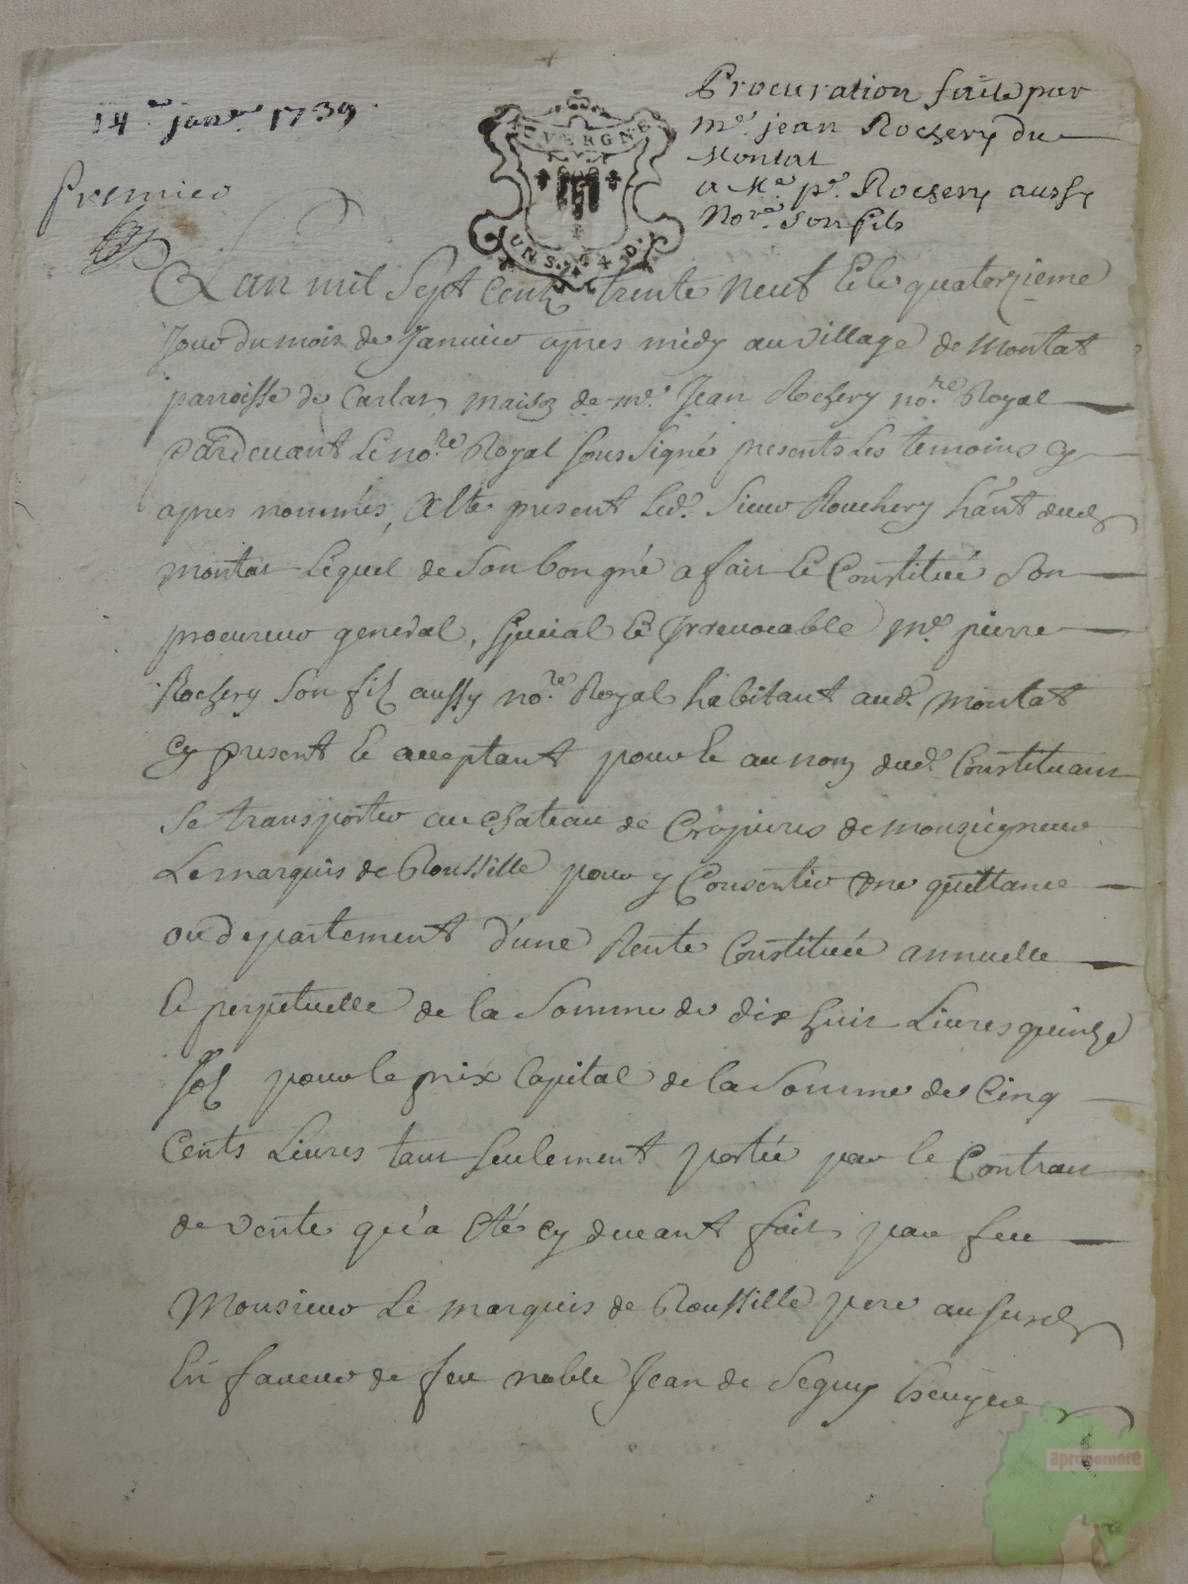 14e janvr. 1739
Premier
AUVERGNE
UN S. 4 D.
Procuration faite par
Me. jean Rochery du
Montat
a Me. pre. Rochery aussy
Nore. son fils
L'an mil Sept Cents trente Neuf Et le quatorzieme
Jour du mois de Janvier apres midy au village de Montat
parroisse de Carlat, maison de me. Jean Rochery nore. Royal
pardevant Le nore. Royal soussigné presents Les temoins cy
apres nommés, A Eté present Led. Sieur Rouchery hant. dud.
montat Lequel de son bon gré a fait Et Constitué Son
procureur general, special Et Irrevocable me. pierre
Rochery Son fils aussy nore. Royal habitant aud. Montat
cy present Et acceptant pour Et au nom dud. Constituant
Se transporter au chateau de Cropieres de monseigneur
Le marquis de Roussille pour y Consentir une quittance
ou departement d'une Rente Constituée annuelle
Et perpetuelle de la Somme de dix huit Livres quinze
sols pour le prix Capital de la Somme de Cinq
Cents Livres tant seulement portée par le Contrat
de vente qu'a Eté cy devant fait par feu
Monsieur Le marquis de Roussille pere au susd.
En faveur de feu noble Jean de Seguy Escuyer
apropomere